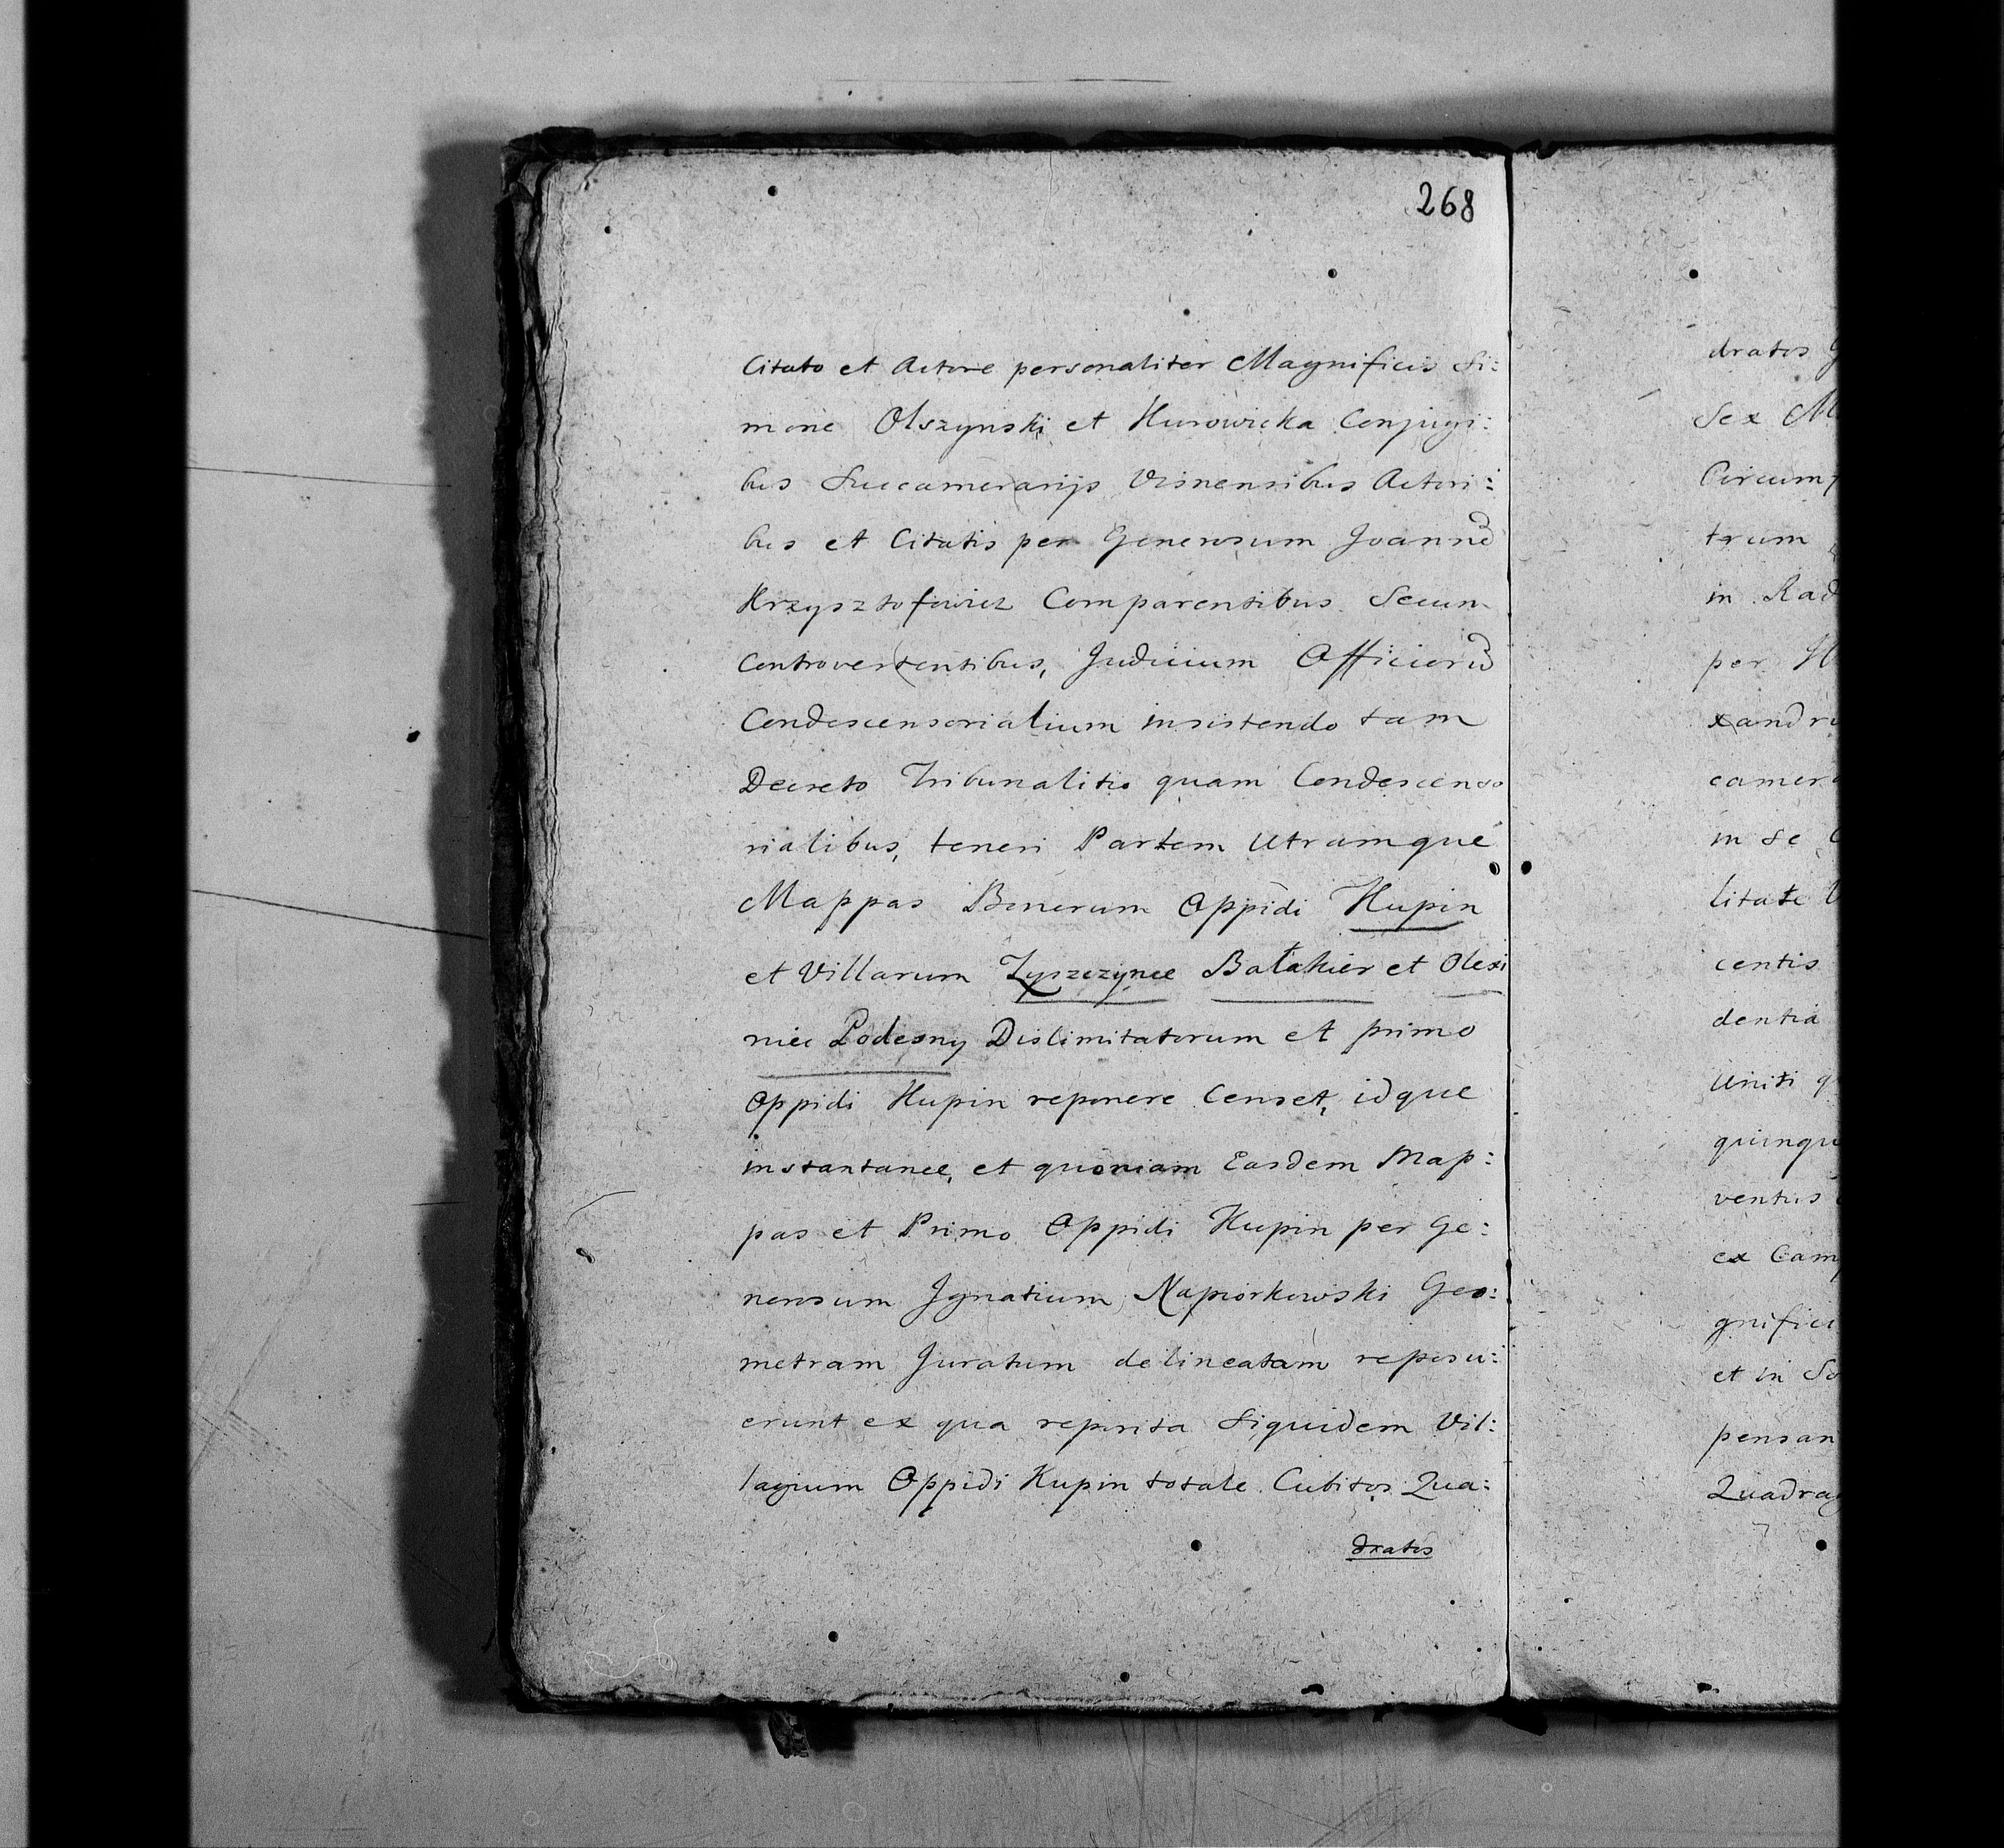 268
Citato et Actore personaliter Magnificis Si:
mone Olszynski et Kurowicka Conjugi:
bus Succamerarijs Visnensibus Actori:
bus et Citatis per Generosum Joannē
Krzysztofowicz Comparentibus Secum
Controvertentibus, Judicium Officiorū
Condescensorialium insistendo tam
Decreto Tribunalitio quam Condescenso
rialibus, teneri Partem Utramque
Mappas Bonorum Oppidi Kupin
et Villarum Łyszczynce Bałakier et Olexi
niec Podesny Dislimitatorum et primo
Oppidi Kupin reponere Censet, idque
instantanee, et quoniam Easdem Map:
pas et Primo Oppidi Kupin per Ge:
nerosum Jgnatium Napiorkowski Geo:
metram Juratum delineatam reposu:
erunt ex qua reperita Siquidem Vil:
lagium Oppidi Kupin totale Cubitos Qua:
dratos
dratos
Sex
trum
in
per
litate
centis
dentia
Uniti
ventus
ex
et in